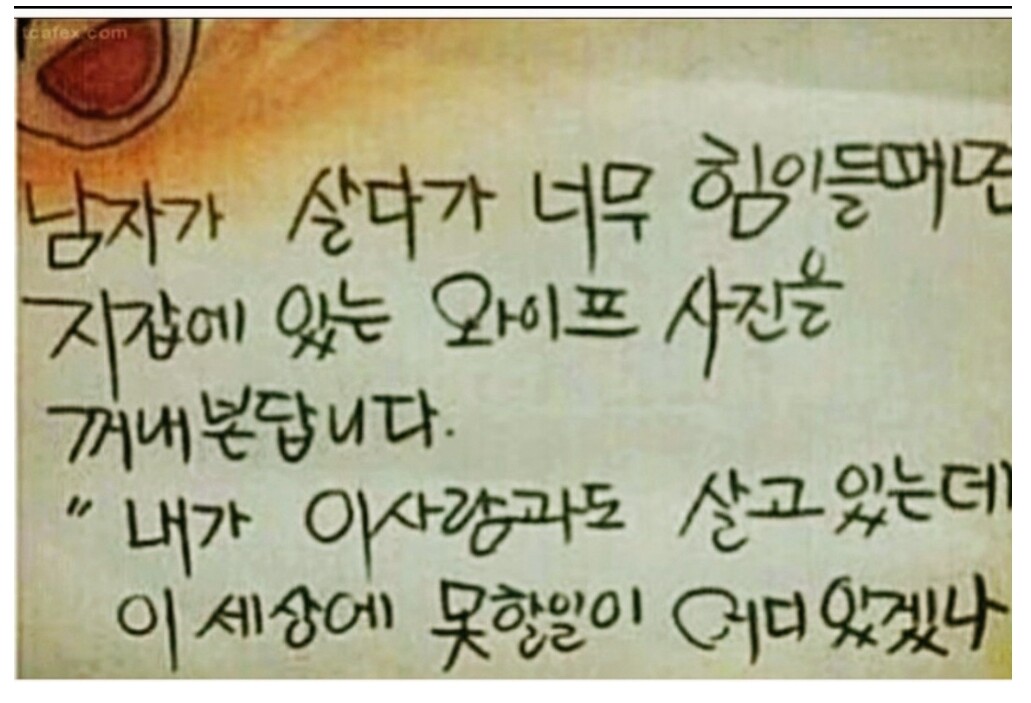 tcafex.com
남자가 살다가 너무 힘이들때면
지갑에 있는 와이프 사진을
꺼내본답니다.
“ 내가 이사람과도 살고있는데
이 세상에 못할일이 어디있겠나